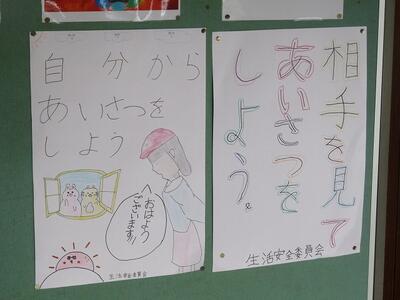 自分から
あいさつを
しよう
おはよう
ございます!!
生活安全委員会
相手を見て
あいさつを
しよう。
生活安全委員会